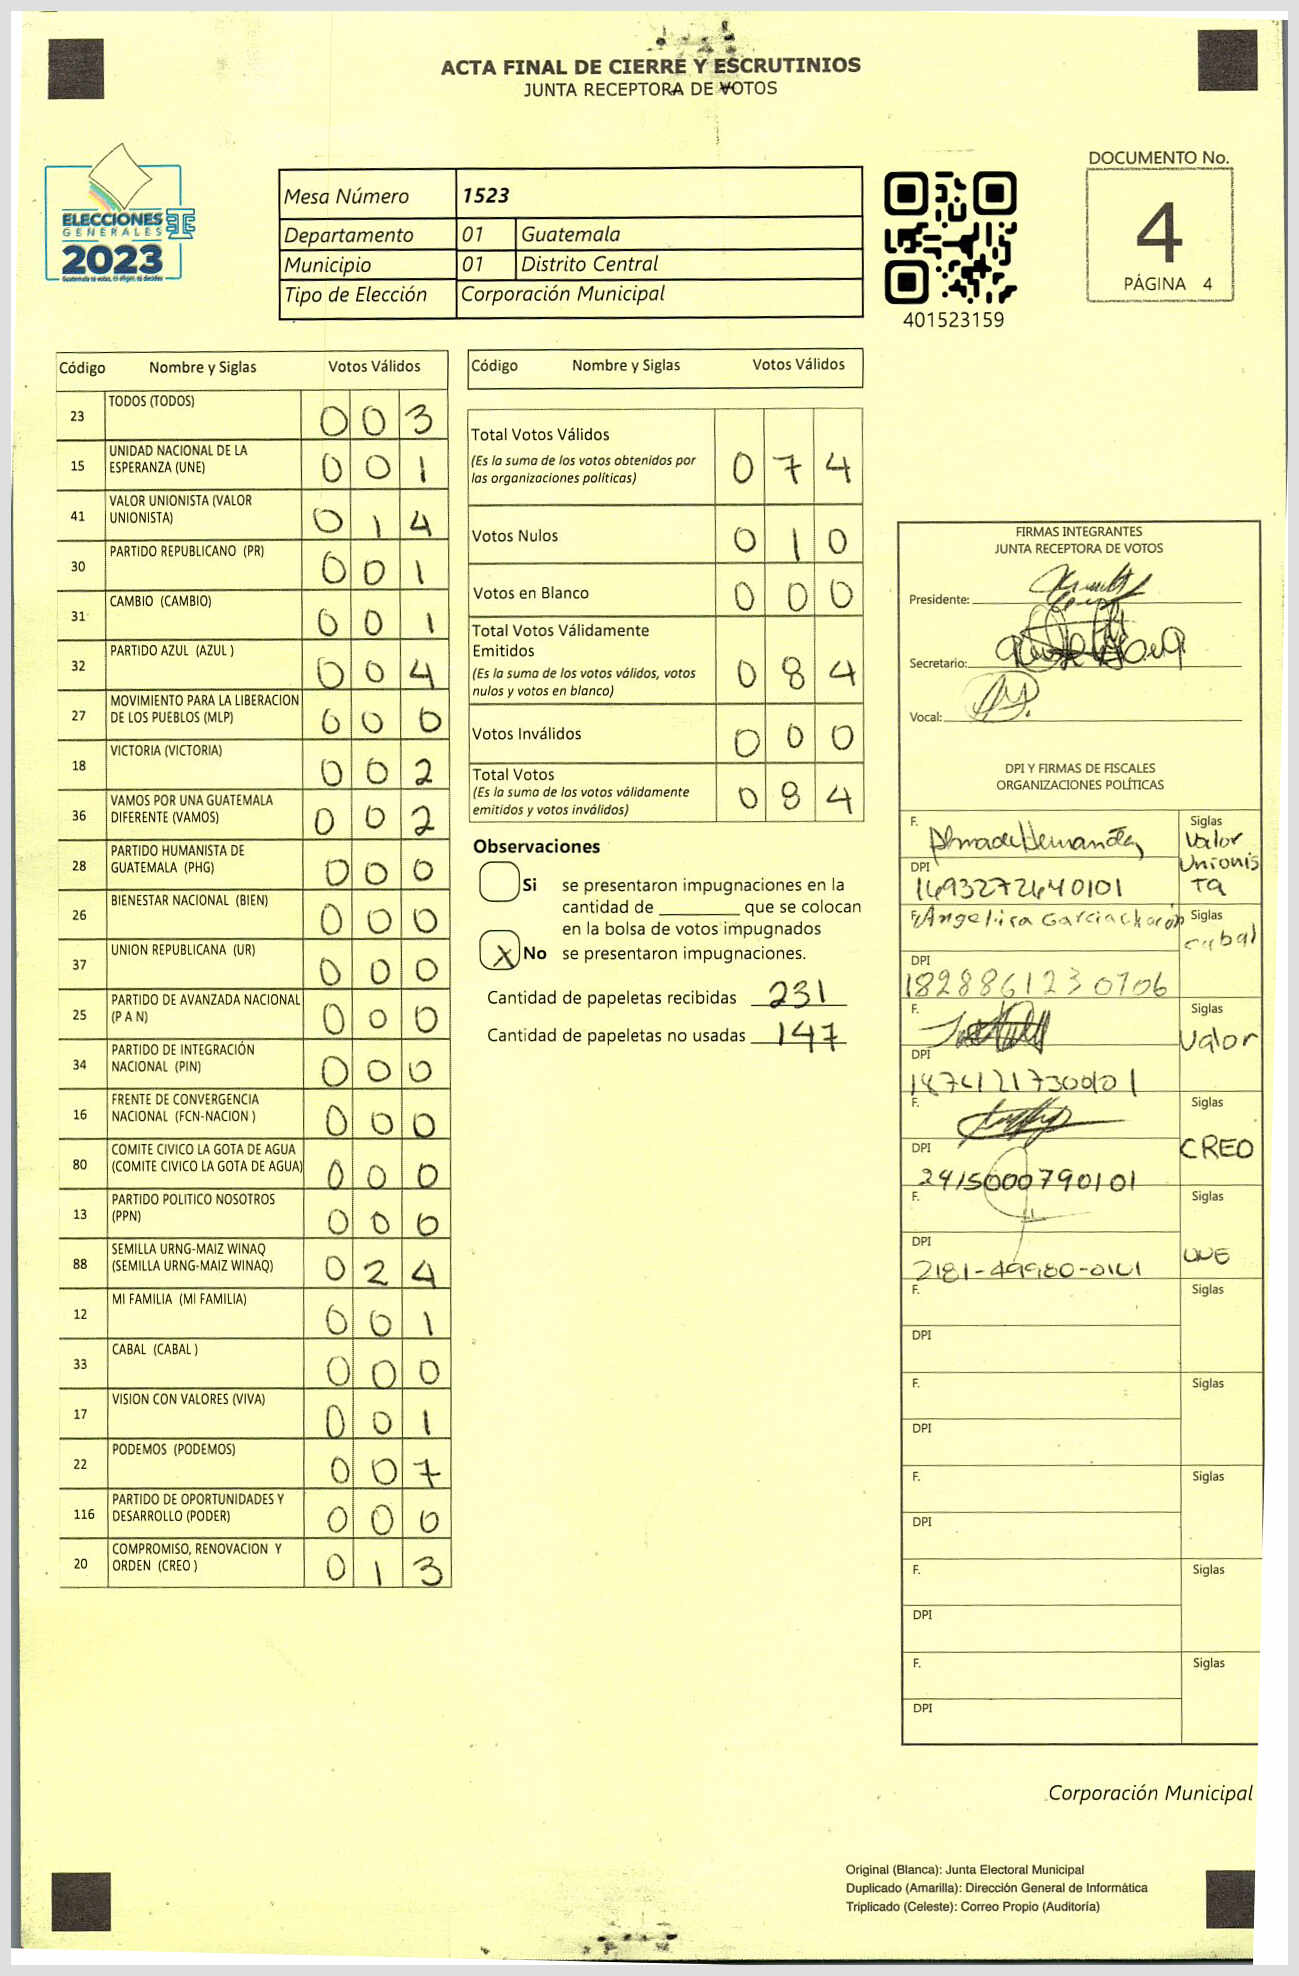 ACTA FINAL DE CIERRE Y ESCRUTINIOS
JUNTA RECEPTORA DE VOTOS
ELECCIONES
GENERALES
2023
Guatemala tú votas, tú eliges, tú decides
Mesa Número 1523
Departamento 01 Guatemala
Municipio 01 Distrito Central
Tipo de Elección Corporación Municipal
401523159
DOCUMENTO No.
4
PÁGINA 4
Código Nombre y Siglas Votos Válidos
23 TODOS (TODOS) 0 0 3
15 UNIDAD NACIONAL DE LA
ESPERANZA (UNE) 0 0 1
41 VALOR UNIONISTA (VALOR
UNIONISTA) 0 1 4
30 PARTIDO REPUBLICANO (PR) 0 0 1
31 CAMBIO (CAMBIO) 0 0 1
32 PARTIDO AZUL (AZUL ) 0 0 4
27 MOVIMIENTO PARA LA LIBERACION
DE LOS PUEBLOS (MLP) 0 0 0
18 VICTORIA (VICTORIA) 0 0 2
36 VAMOS POR UNA GUATEMALA
DIFERENTE (VAMOS) 0 0 2
28 PARTIDO HUMANISTA DE
GUATEMALA (PHG) 0 0 0
26 BIENESTAR NACIONAL (BIEN) 0 0 0
37 UNION REPUBLICANA (UR) 0 0 0
25 PARTIDO DE AVANZADA NACIONAL
(P A N) 0 0 0
34 PARTIDO DE INTEGRACIÓN
NACIONAL (PIN) 0 0 0
16 FRENTE DE CONVERGENCIA
NACIONAL (FCN-NACION ) 0 0 0
80 COMITE CIVICO LA GOTA DE AGUA
(COMITE CIVICO LA GOTA DE AGUA) 0 0 0
13 PARTIDO POLITICO NOSOTROS
(PPN) 0 0 0
88 SEMILLA URNG-MAIZ WINAQ
(SEMILLA URNG-MAIZ WINAQ) 0 2 4
12 MI FAMILIA (MI FAMILIA) 0 0 1
33 CABAL (CABAL ) 0 0 0
17 VISION CON VALORES (VIVA) 0 0 1
22 PODEMOS (PODEMOS) 0 0 7
116 PARTIDO DE OPORTUNIDADES Y
DESARROLLO (PODER) 0 0 0
20 COMPROMISO, RENOVACION Y
ORDEN (CREO ) 0 1 3
Código Nombre y Siglas Votos Válidos
Total Votos Válidos
(Es la suma de los votos obtenidos por
las organizaciones políticas) 0 7 4
Votos Nulos 0 1 0
Votos en Blanco 0 0 0
Total Votos Válidamente
Emitidos
(Es la suma de los votos válidos, votos
nulos y votos en blanco) 0 8 4
Votos Inválidos 0 0 0
Total Votos
(Es la suma de los votos válidamente
emitidos y votos inválidos) 0 8 4
Observaciones
Si se presentaron impugnaciones en la
cantidad de ________ que se colocan
en la bolsa de votos impugnados
X No se presentaron impugnaciones.
Cantidad de papeletas recibidas 231
Cantidad de papeletas no usadas 147
FIRMAS INTEGRANTES
JUNTA RECEPTORA DE VOTOS
Presidente:
Secretario:
Vocal:
DPI Y FIRMAS DE FISCALES
ORGANIZACIONES POLÍTICAS
F. Siglas
Valor
Unionis
ta
DPI
1693272640101
F. Angelica Garcia chacón Siglas
cabal
DPI
1828861230706
F. Siglas
Valor
DPI
F. Siglas
CREO
DPI
2415000790101
F. Siglas
UNE
DPI
F. Siglas
DPI
F. Siglas
DPI
F. Siglas
DPI
F. Siglas
DPI
F. Siglas
DPI
Corporación Municipal
Original (Blanca): Junta Electoral Municipal
Duplicado (Amarilla): Dirección General de Informática
Triplicado (Celeste): Correo Propio (Auditoría)